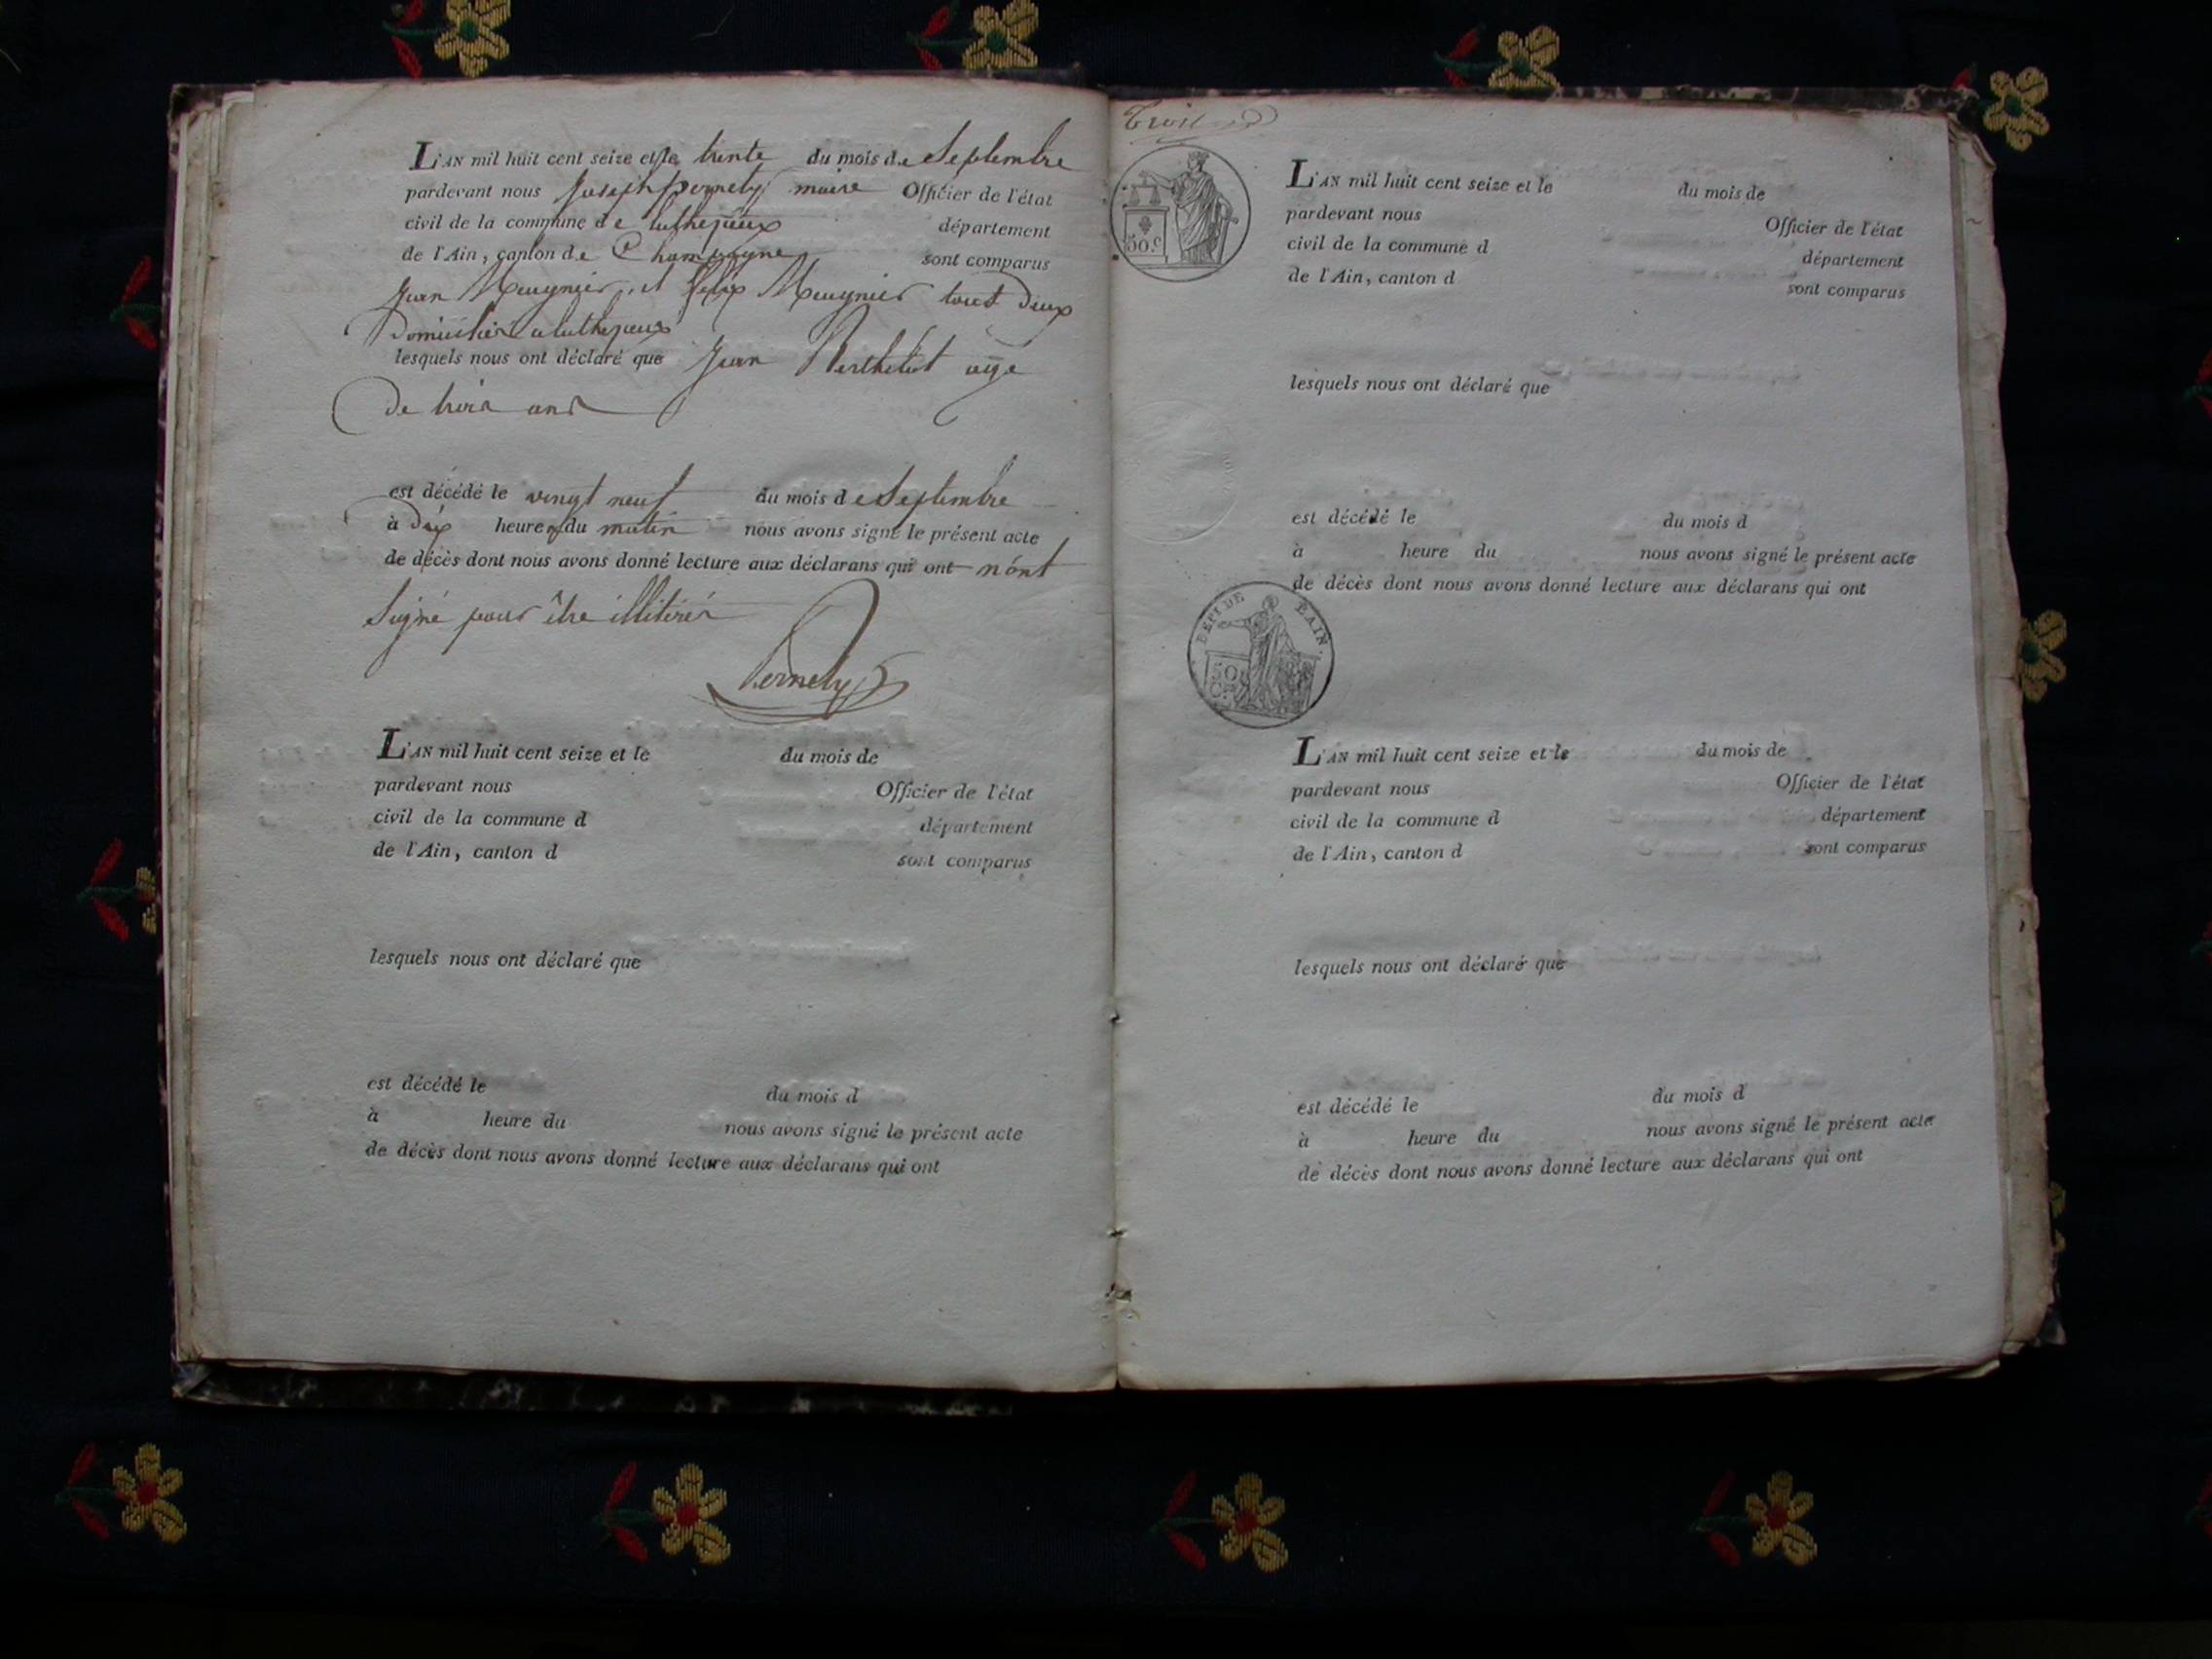 L'AN mil huit cent seize et le trente du mois de Septembre
pardevant nous joseph pernety maire Officier de l'état
civil de la commune de luthezieux département
de l'Ain, canton de Champagne sont comparus
jean Meugnier et felix Meugnier tout deux
Domicilies a luthezieux
lesquels nous ont déclaré que jean Berthelot agé
de trois ans
est décédé le vingt neuf du mois de Septembre
à dix heures du matin nous avons signé le présent acte
de décès dont nous avons donné lecture aux déclarans qui ont n'ont
Signé pour être illitérés
Pernety
L'AN mil huit cent seize et le du mois de
pardevant nous Officier de l'état
civil de la commune d département
de l'Ain, canton d sont comparus
lesquels nous ont déclaré que
est décédé le du mois d
à heure du nous avons signé le présent acte
de décès dont nous avons donné lecture aux déclarans qui ont
Trois
50.c
L'AN mil huit cent seize et le du mois de
pardevant nous Officier de l'état
civil de la commune d département
de l'Ain, canton d sont comparus
lesquels nous ont déclaré que
est décédé le du mois d
à heure du nous avons signé le présent acte
de décès dont nous avons donné lecture aux déclarans qui ont
DEPT DE L'AIN
50
L'AN mil huit cent seize et le du mois de
pardevant nous Officier de l'état
civil de la commune d département
de l'Ain, canton d sont comparus
lesquels nous ont déclaré que
est décédé le du mois d
à heure du nous avons signé le présent acte
de décès dont nous avons donné lecture aux déclarans qui ont